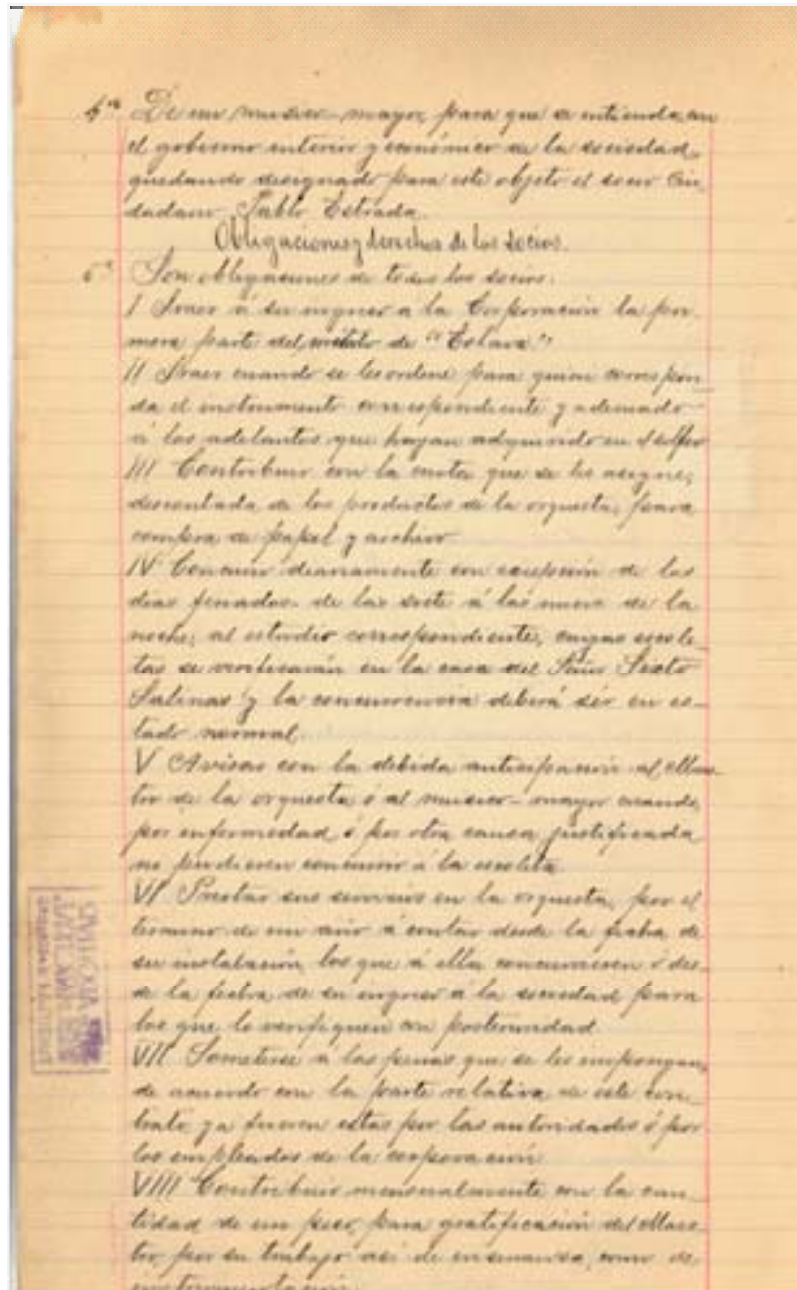 4ª De un musico-mayor, para que se entienda, en
el gobierno interior y económico de la sociedad,
quedando designado para este objeto el socio Ciu-
dadano Pablo Estrada.
Obligaciones y derechos de los socios.
5ª Son obligaciones de todos los socios:
I Traer á su ingreso a la Corporación la pri-
mera parte del método de "Eslava."
II Traer cuando se les ordene para quien correspon-
da el instrumento correspondiente y adecuado
á los adelantos que hayan adquirido en el solfeo
III Contribuir con la cuota que se les asigne,
descontada de los productos de la orquesta, para
compra de papel y archivo
IV Concurrir diariamente con excepción de los
dias feriados, de las siete á las nueve de la
noche, al estudio correspondiente, cuyas escole-
tas se verificarán en la casa del Señor Sixto
Salinas y la concurrencia deberá sér en es-
tado normal.
V Avisar con la debida anticipación al Maes-
tro de la orquesta ó al musico-mayor cuando,
por enfermedad ó por otra causa justificada
no pudieren concurrir á la escoleta.
VI Prestar sus servicios en la orquesta, por el
término de un año á contar desde la fecha de
su instalación, los que á ella concurriesen ó des-
de la fecha de su ingreso á la sociedad para
los que lo verifiquen con posterioridad
VII Someterse a las penas que se les impongan,
de acuerdo con la parte relativa de este con-
trato, ya fueren estas por las autoridades ó por
los empleados de la corporación
VIII Contribuir mensualmente con la can-
tidad de un peso, para gratificación del Maes-
tro, por su trabajo asi de enseñanza, como de
instrumentación